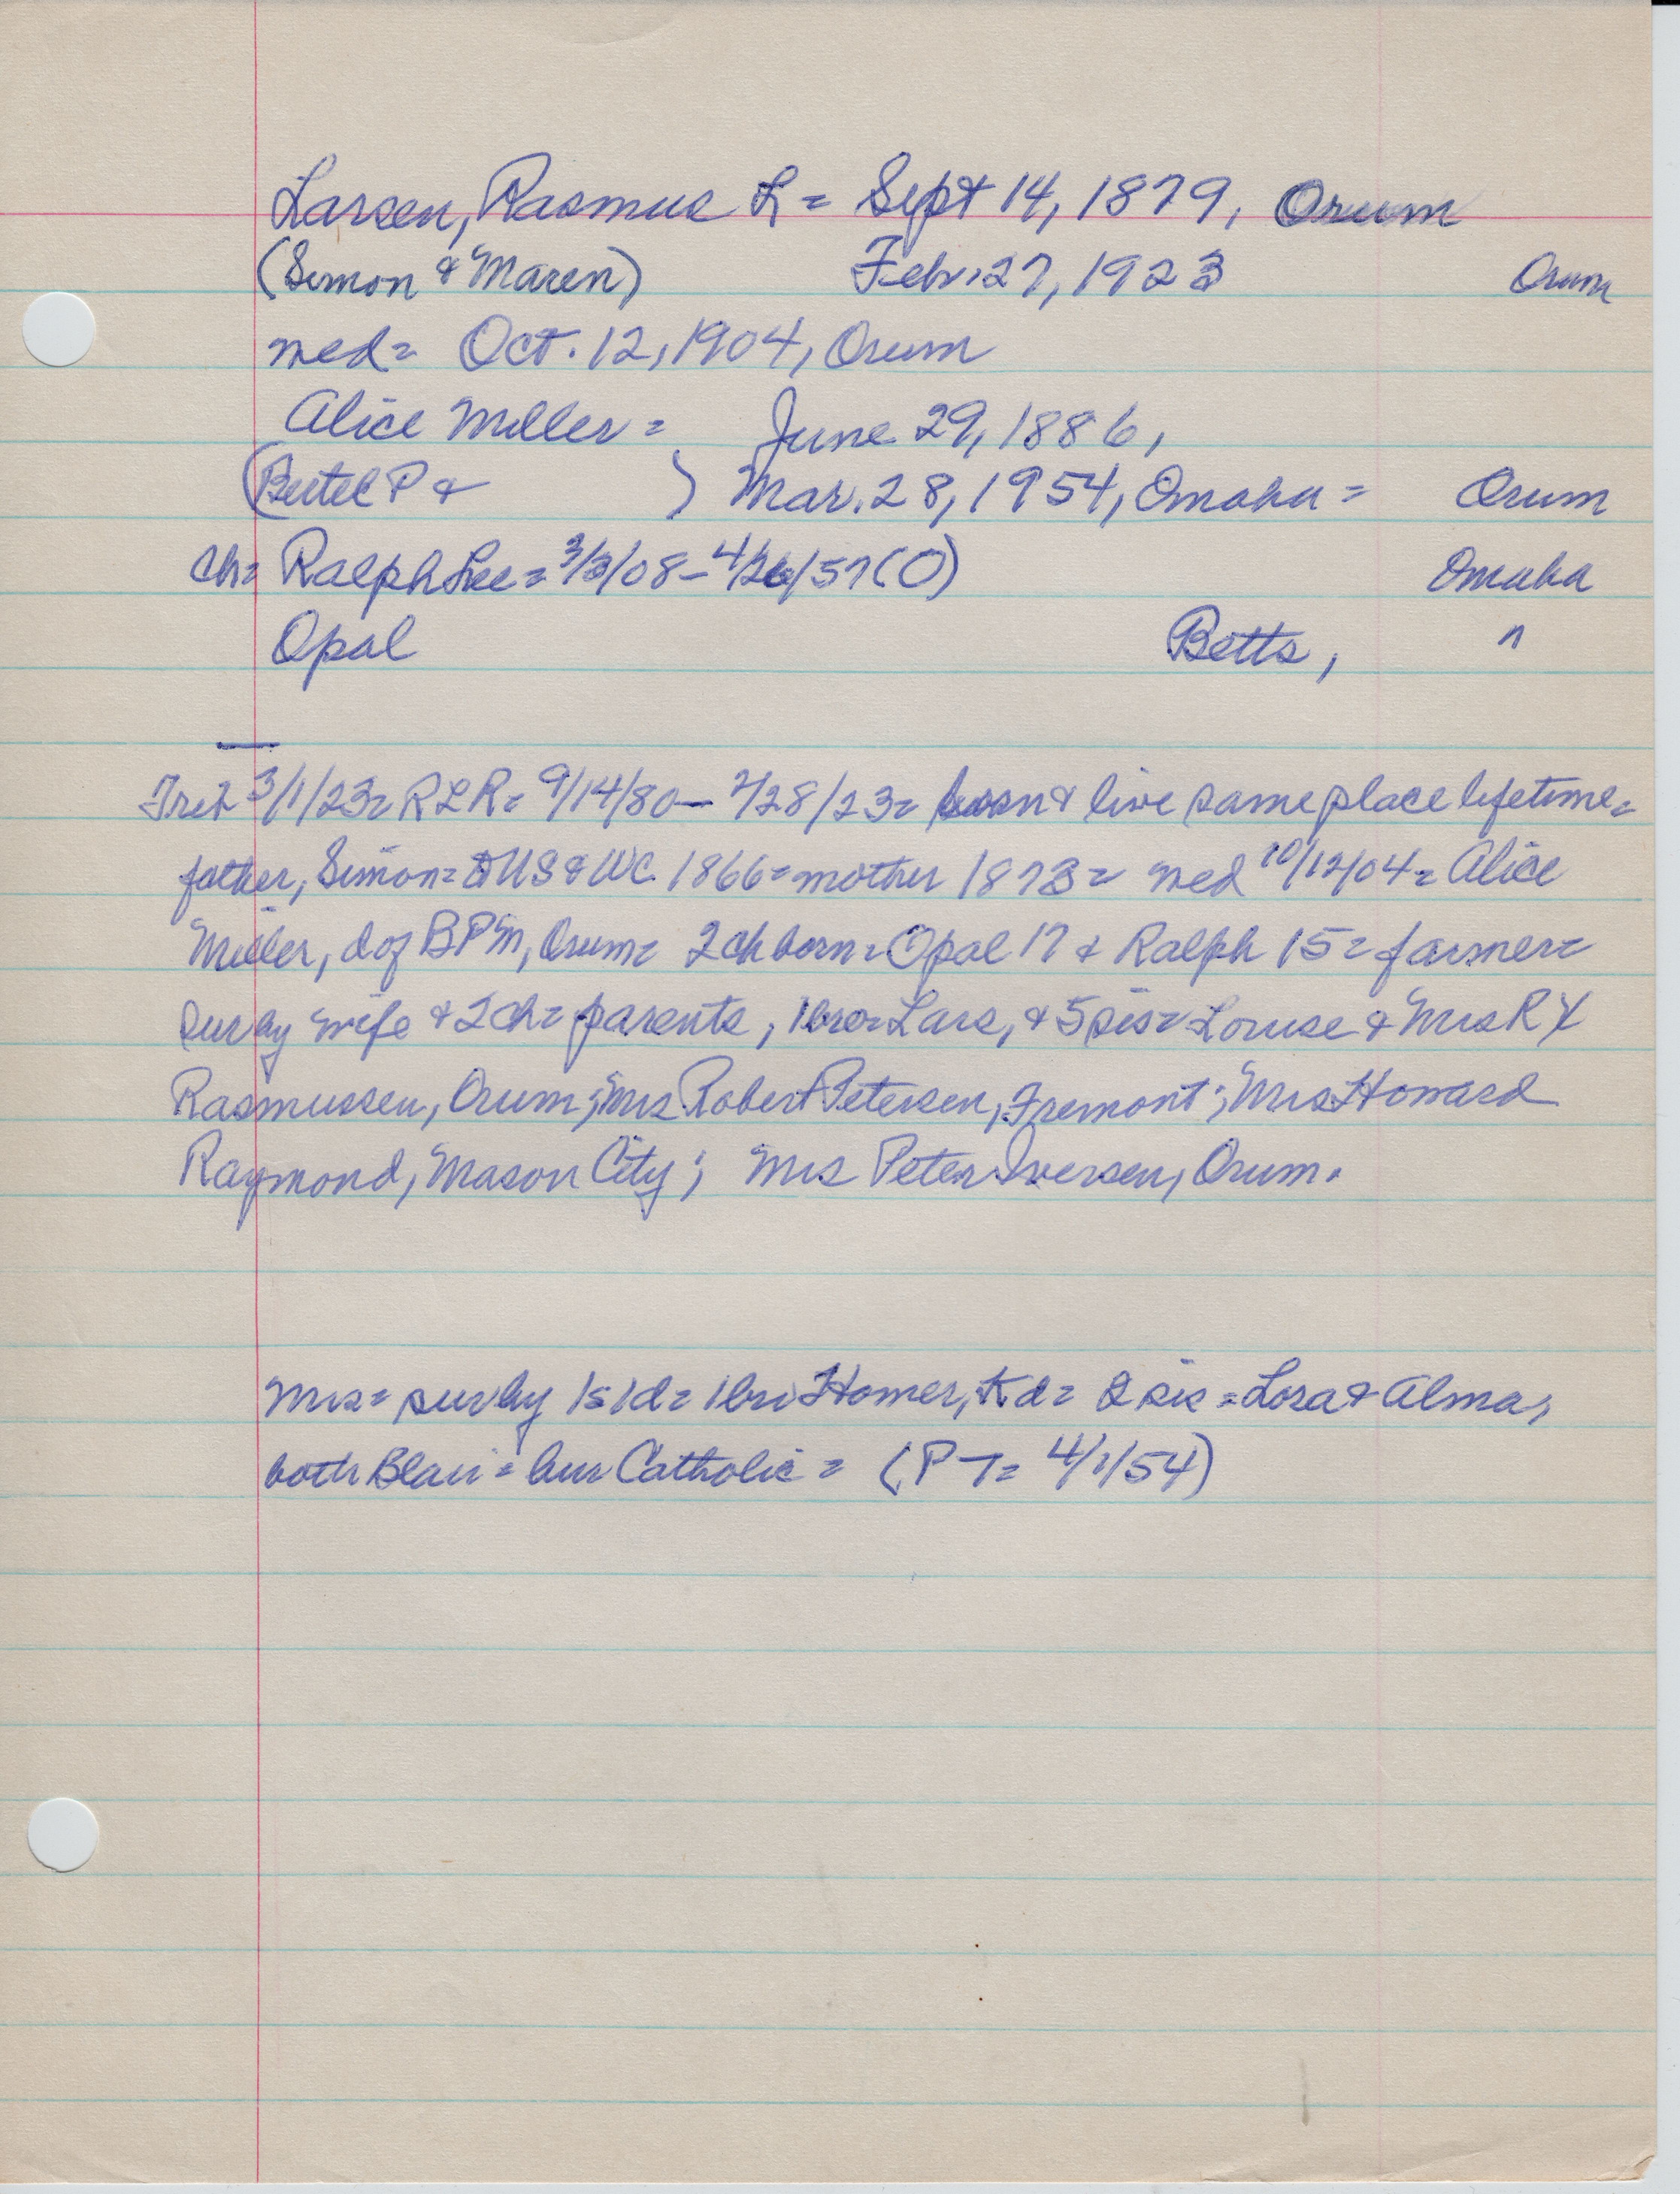 Larsen, Rasmus L = Sept 14, 1879, Orum
(Simon & Maren) Feb. 27, 1923 Orum
med = Oct. 12, 1904, Orum
Alice Miller = June 29, 1886,
(Bertel P & ) Mar. 28, 1954, Omaha = Orum
ch = Ralph Lee = 3/3/08 - 4/26/57 (O) Omaha
Opal Betts, "
3/1/23 = RLR = 9/14/80 - 2/28/23 = born & live same place lifetime =
father, Simon = US & WC 1866 = mother 1873 = med 10/12/04 = Alice
Miller, d of BPM, Orum = 2 ch born = Opal 17 & Ralph 15 = farmer =
sur by wife & 2 ch = parents, 1 bro = Lars, & 5 sis = Louise & Mrs R
Rasmussen, Orum; Mrs Robert Petersen, Fremont; Mrs Howard
Raymond, Mason City; Mrs Peter Iversen, Orum.
Mrs = sur by 1s 1d = 1 bro Homer, = 2 sis = Lora & Alma,
both Blair = bur Catholic = (PT = 4/1/54)